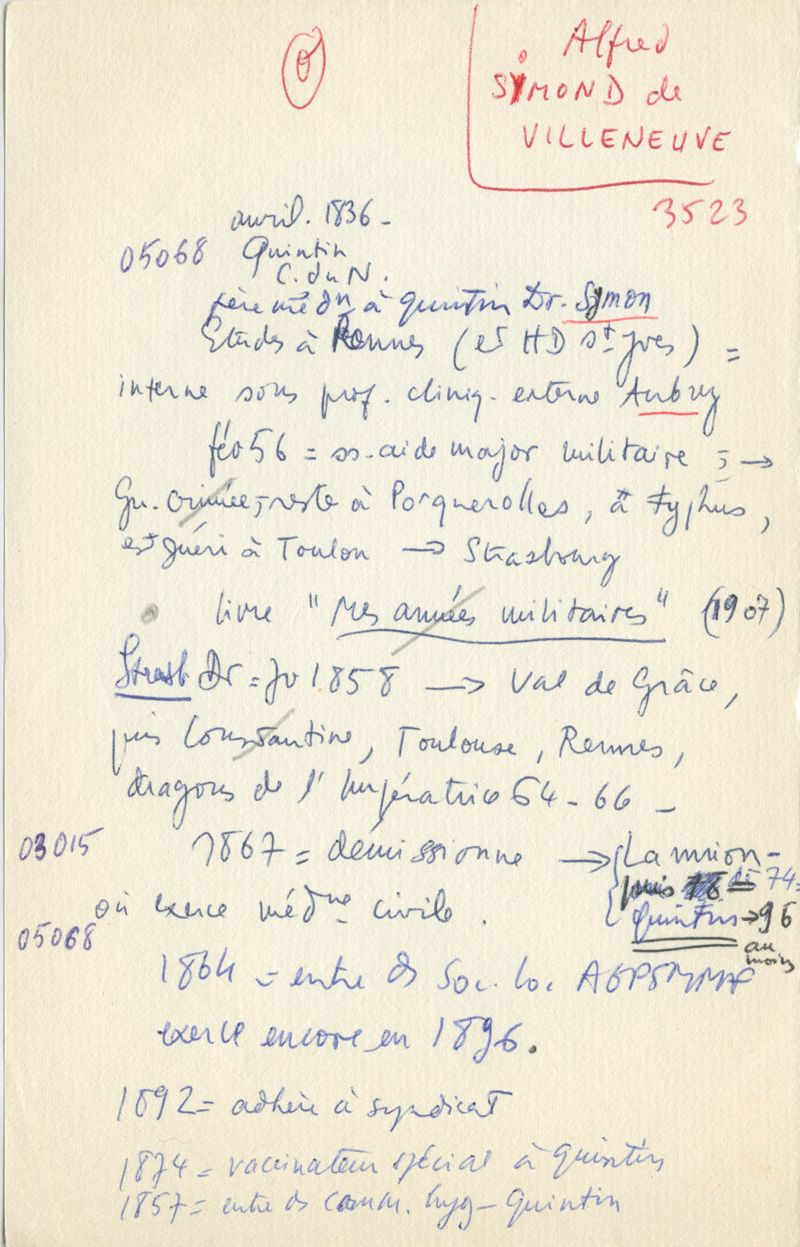 Alfred
SYMOND de
VILLENEUVE
3523
avril. 1836 -
05068 Quintin
C. du N.
père médn à quintin Dr. Symon
Etudes à Rennes (et HD St Yves) =
interne sous prof. cliniq. externe Aubry
fév 56 = ss-aide major militaire ; →
Gu. Crimée, reste à Porquerolles, a typhus,
est guéri à Toulon → Strasbourg
livre "Mes années militaires" (1907)
Strasb Dr = Jv 1858 → Val de Grâce,
puis Constantine, Toulouse, Rennes,
dragons de l'Impératrice 64 - 66 -
03015 1867 = démissionne → Lannion -
puis 74 =
où exerce médne civile. Quintin → 96
05068 au
moins
1864 = entre ds Soc. loc
exerce encore en 1896.
1892 = adhère à syndicat
1874 = vaccinateur spécial à Quintin
1857 = entre ds comm. hyg - Quintin